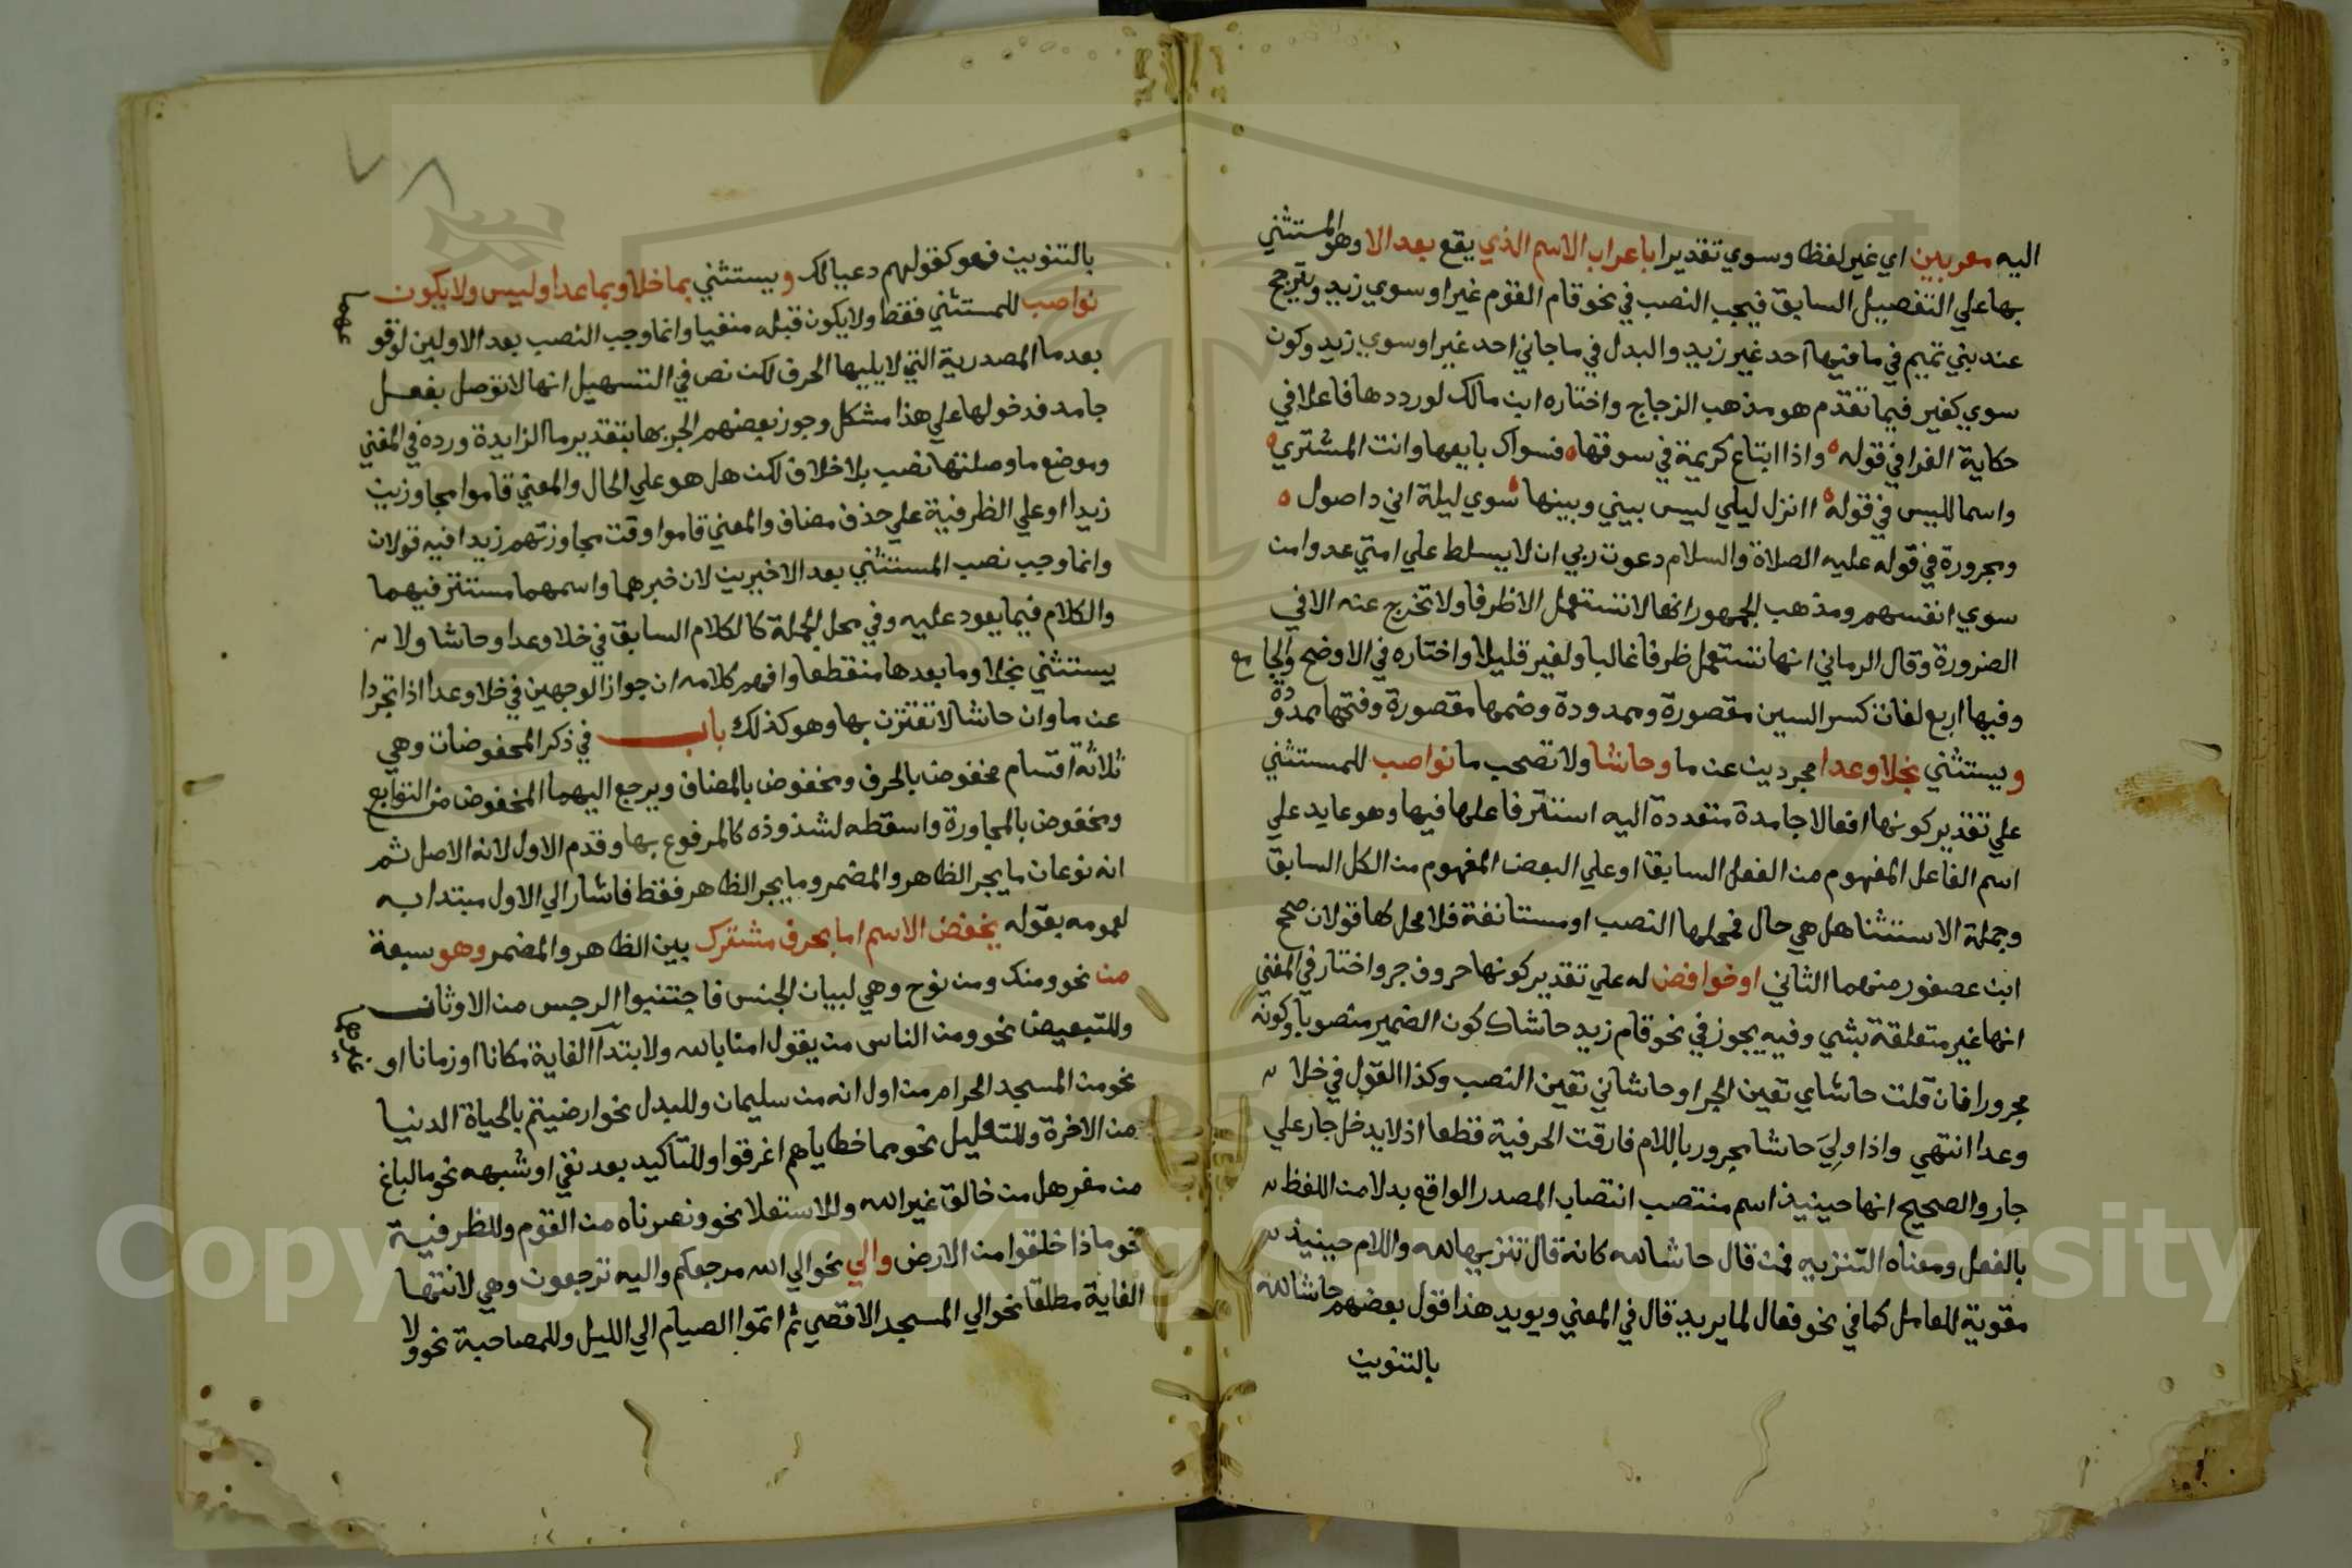 اليه معربين اي غير لفظا وسوي تقديرا باعراب الاسم الذي يقع بعد الا وهو المستثني
بها علي التفصيل السابق فيجب النصب في نحو قام القوم غيرا وسوي زيد ويترجح
عند بني تميم في ما فيها احد غير زيد والبدل في ما جاني احد غيرا وسوي زيد وكون
سوي كغير فيما تقدم هو مذهب الزجاج واختاره ابن مالك لورودها فاعلا في
حكاية الفرا في قوله واذا ابتاع كريمة في سوقها فسواك بايعها وانت المشتري
واسما لليس في قوله اانزل ليلي ليس بيني وبينها سوي ليلة اني دا صول
ومجرورة في قوله عليه الصلاة والسلام دعوت ربي ان لا يسلط علي امتي عدوا من
سوي انفسهم ومذهب الجمهور انها لا تستعمل الا ظرفا ولا تخرج عنه الا في
الضرورة وقال الرماني انها تستعمل ظرفا غالبا ولغير قليلا واختاره في الاوضح والجامع
وفيها اربع لغات كسر السين مقصورة وممدودة وضمها مقصورة وفتحها ممدودة
ويستثني بخلا وعدا مجردين عن ما وحاشا ولا تصحب ما نواصب للمستثني
علي تقدير كونها افعالا جامدة متعددة اليه استتر فاعلها فيها وهو عايد علي
اسم الفاعل المفهوم من الفعل السابق او علي البعض المفهوم من الكل السابق
وجملة الاستثنا هل هي حال فمحلها النصب او مستانفة فلا محل لها قولان صحح
ابن عصفور منهما الثاني او خوافض له علي تقدير كونها حروف جر واختار في المغني
انها غير متعلقة بشي وفيه يجوز في نحو قام زيد حاشاك كون الضمير منصوبا وكونه
مجرورا فان قلت حاشاي تعين الجر او حاشاني تعين النصب وكذا القول في خلا
وعدا انتهي واذا ولي حاشا مجرور باللام فارقت الحرفية قطعا اذ لا يدخل جار علي
جار والصحيح انها حينيذ اسم منتصب انتصاب المصدر الواقع بدلا من اللفظ
بالفعل ومعناه التنزيه فمن قال حاشا لله كانه قال تنزيها لله واللام حينيذ
مقوية للعامل كما في نحو فعال لما يريد قال في المغني ويويد هذا قول بعضهم حاشا لله
بالتنوين
٧٨
بالتنوين فهو كقولهم دعيا لك ويستثني بما خلا وبما عدا وليس ولا يكون
نواصب للمستثني فقط ولا يكون قبله منفيا وانما وجب النصب بعد الاولين لوقوعهما
بعد ما المصدرية التي لا يليها الحرف لكن نص في التسهيل انها لا توصل بفعل
جامد فدخولها علي هذا مشكل وجوز بعضهم الجر بها بتقدير ما الزايدة ورده في المغني
وموضع ما وصلتها نصب بلا خلاف لكن هل هو علي الحال والمعني قاموا مجاوزين
زيدا او علي الظرفية علي حذف مضاف والمعني قاموا وقت مجاوزتهم زيدا فيه قولان
وانما وجب نصب المستثني بعد الاخيرين لان خبرهما واسمهما مستتر فيهما
والكلام فيما يعود عليه وفي محل الجملة كالكلام السابق في خلا وعدا وحاشا ولا
يستثني بخلا وما بعدها منقطعا وافهم كلامه ان جواز الوجهين في خلا وعدا اذا تجردا
عن ما وان حاشا لا تقترن بها وهو كذلك باب في ذكر المخفوضات وهي
ثلاثة اقسام مخفوض بالحرف ومخفوض بالمضاف ويرجع اليهما المخفوض من التوابع
ومخفوض بالمجاورة واسقطه لشذوذه كالمرفوع بها وقدم الاول لانه الاصل ثم
انه نوعان ما يجر الظاهر والمضمر وما يجر الظاهر فقط فاشار الي الاول مبتدا به
لعمومه بقوله يخفض الاسم اما بحرف مشترك بين الظاهر والمضمر وهو سبعة
من نحو ومنك ومن نوح وهي لبيان الجنس فاجتنبوا الرجس من الاوثان
وللتبعيض نحو ومن الناس من يقول امنا بالله ولابتدآ الغاية مكانا او زمانا او غيرهما
نحو من المسجد الحرام من اول انه من سليمان وللبدل نحو ارضيتم بالحياة الدنيا
من الاخرة وللتعليل نحو مما خطاياهم اغرقوا وللتاكيد بعد نفي او شبهه نحو ما لباغ
من مفر هل من خالق غير الله وللاستعلا نحو ونصرناه من القوم وللظرفية
نحو ماذا خلقوا من الارض والي نحو الي الله مرجعكم واليه ترجعون وهي لانتها
الغاية مطلقا نحو الي المسجد الاقصي ثم اتموا الصيام الي الليل وللمصاحبة نحو ولا
Copyright © King Saud University